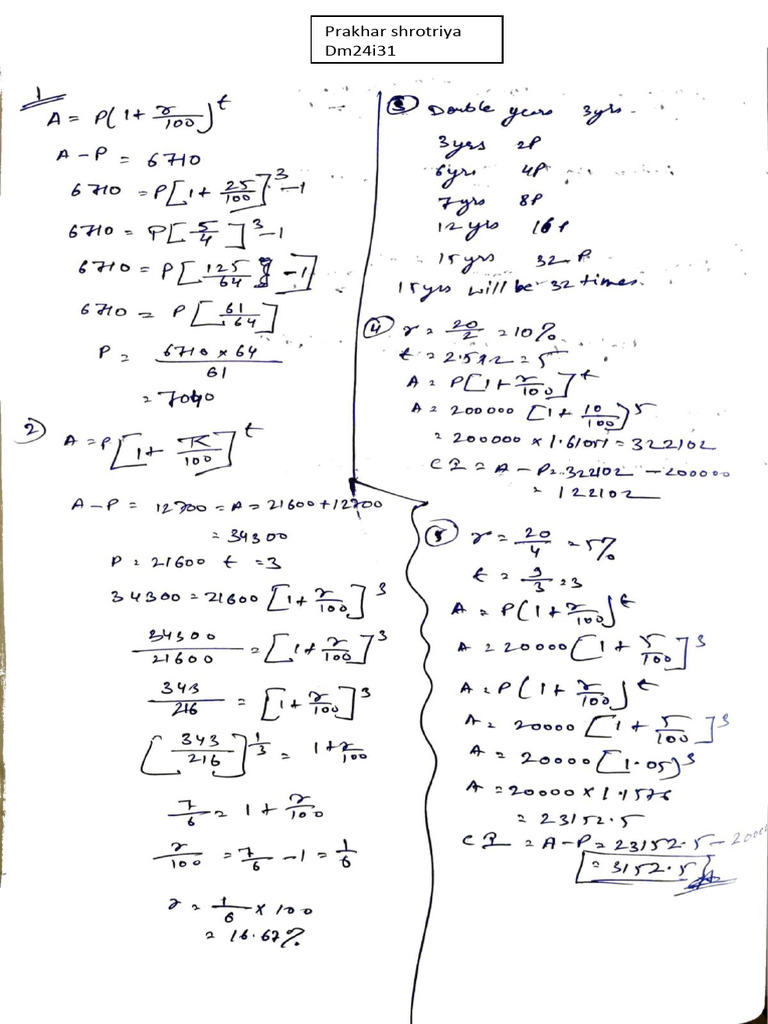 Prakhar shrotriya
Dm24i31
1
A = P(1 + r/100)^t
A - P = 6710
6710 = P[1 + 25/100]^3 - 1
6710 = P[5/4]^3 - 1
6710 = P[125/64 - 1]
6710 = P[61/64]
P = 6710 × 64 / 61
= 7040
2
A = P[1 + R/100]^t
A - P = 12700 = A = 21600 + 12700
= 34300
P = 21600 t = 3
34300 = 21600 [1 + r/100]^3
34300/21600 = [1 + r/100]^3
343/216 = [1 + r/100]^3
[343/216]^1/3 = 1 + r/100
7/6 = 1 + r/100
r/100 = 7/6 - 1 = 1/6
r = 1/6 × 100
= 16.67%
3 Double years 3yrs.
3yrs 2P
6yrs 4P
7yrs 8P
12yrs 16P
15yrs 32P
15yrs will be 32 times.
4 r = 20/2 = 10%
t = 2.5×2 = 5
A = P[1 + r/100]^t
A = 200000 [1 + 10/100]^5
= 200000 × 1.61051 = 322102
CI = A - P = 322102 - 200000
= 122102
5 r = 20/4 = 5%
t = 9/3 = 3
A = P(1 + r/100)^t
A = 20000 [1 + 5/100]^3
A = P(1 + r/100)^t
A = 20000 [1 + 5/100]^3
A = 20000 [1.05]^3
A = 20000 × 1.1576
= 23152.5
CI = A - P = 23152.5 - 20000
= 3152.5